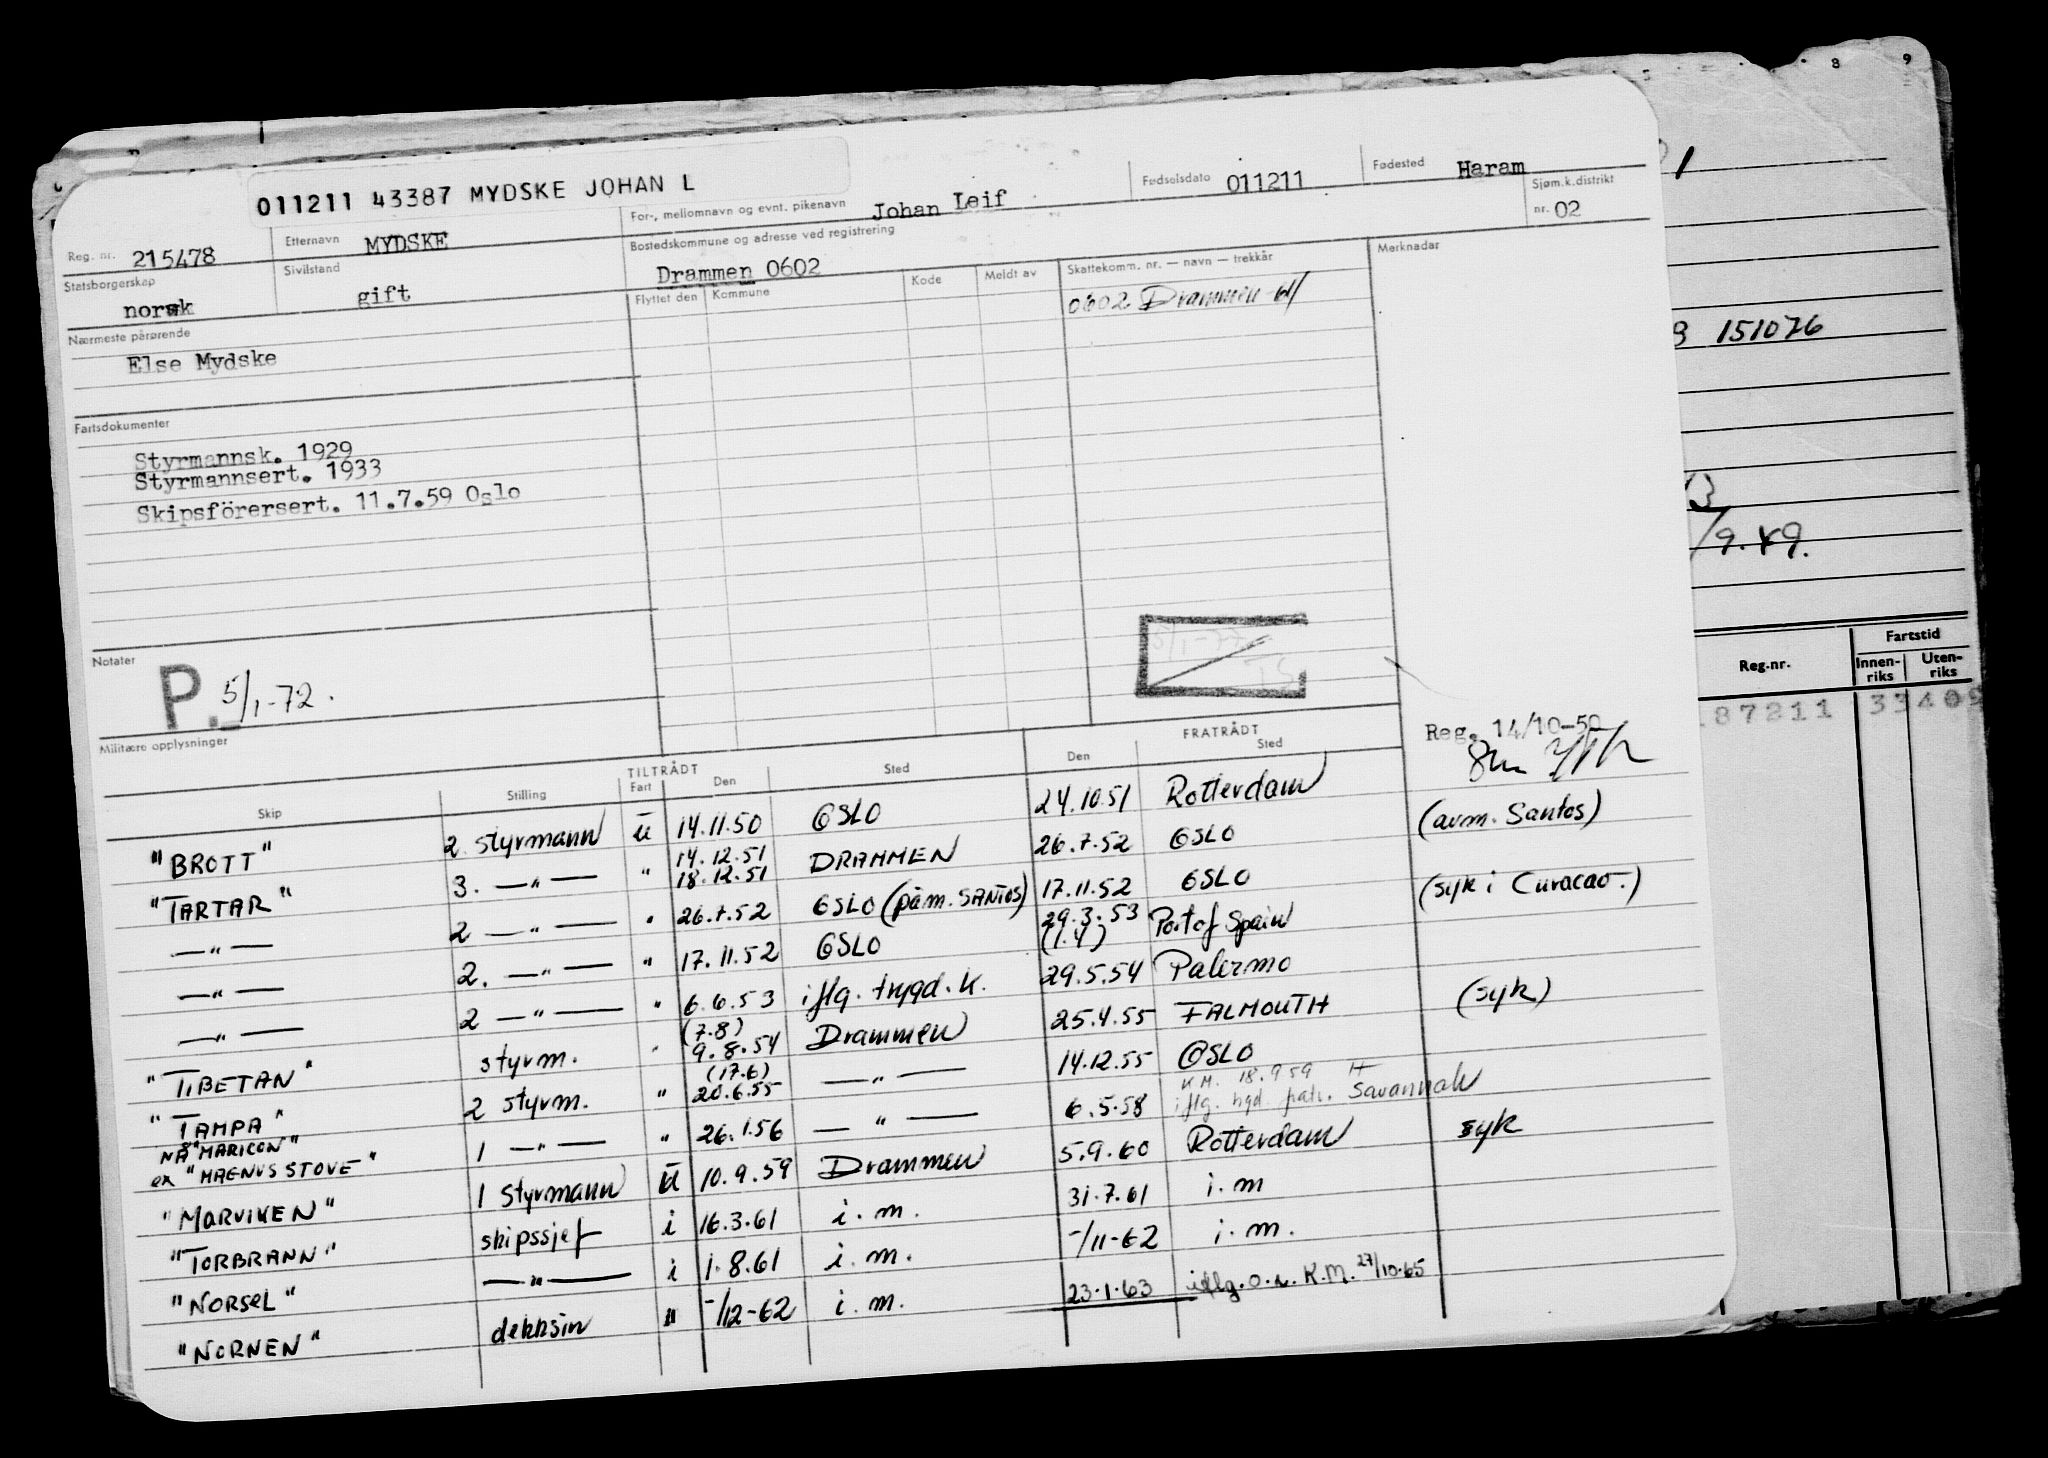 8 9
011211 43387 MYDSKE JOHAN L
Reg. nr. 215478 Etternavn MYDSKE For-, mellomnavn og evnt. pikenavn Johan Leif Fødselsdato 011211 Fødested Haram
Sjøm.k.distrikt nr. 02
Statsborgerskap norsk Sivilstand gift Bostedskommune og adresse ved registrering Drammen 0602
Nærmeste pårørende Flyttet den Kommune Kode Meldt av Skattekomm. nr. — navn — trekkår Merknadar
Else Mydske 0602 Drammen
151076
Fartsdokumenter
Styrmannsk. 1929
Styrmannsert. 1933
Skipsförersert. 11.7.59 Oslo
/9.49.
Notater
P. 5/1-72.
Militære opplysninger
Reg. 14/10-50
Reg.nr. Fartstid
Innen-riks Uten-riks
87211 33405
TILTRÅDT FRATRÅDT
Skip Stilling Fart Den Sted Den Sted
"BROTT" 2. styrmann ū 14.11.50 OSLO 24.10.51 Rotterdam
"TARTAR" 3. —"— " 14.12.51 18.12.51 DRAMMEN 26.7.52 OSLO (avm. Santos)
—"— 2 —"— " 26.7.52 OSLO (påm. SANTOS) 17.11.52 OSLO
—"— 2. —"— " 17.11.52 OSLO 29.3.53 (1.4) Port of Spain (syk i Curacao.)
—"— 2 —"— " 6.6.53 iflg. trygd. k. 29.5.54 Palermo
"TIBETAN" styrm. " (7.8) 9.8.54 Drammen 25.4.55 FALMOUTH (syk)
"TAMPA" 2 styrm. " (17.6) 20.6.55 —"— 14.12.55 OSLO
NÅ "MARICON"
ex "MAGNUS STOVE" 1 —"— " 26.1.56 —"— 6.5.58 K.M. 18.9 59 iflg. Savannah
"MARVIKEN" 1 styrmann ū 10.9.59 Drammen 5.9.60 Rotterdam syk
"TORBRANN" skipssjef i 16.3.61 i.m. 31.7.61 i.m
"NORSEL" —"— i 1.8.61 i.m. -/11-62 i.m.
"NORNEN" dekksin " -/12-62 i.m. 23.1.63 iflg. o.r. K.M. 27/10.65